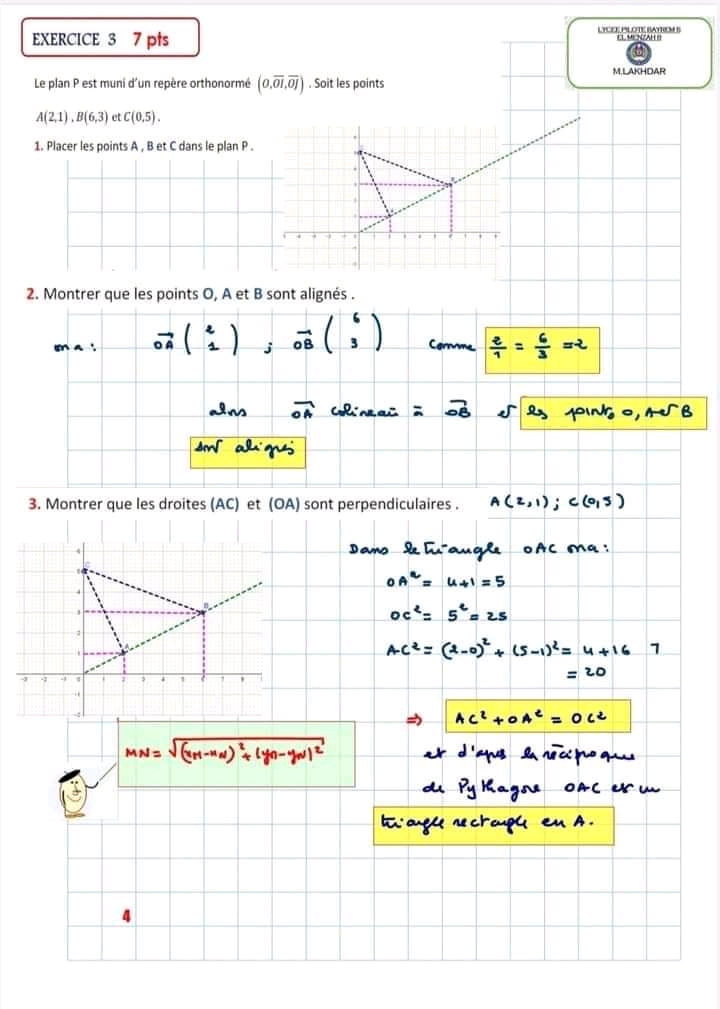 EXERCICE 3 7 pts
LYCEE PILOTE BAYREM 8
EL MENZAH 8
M.LAKHDAR
Le plan P est muni d'un repère orthonormé (O,OI,OJ) . Soit les points
A(2,1) , B(6,3) et C(0,5) .
1. Placer les points A , B et C dans le plan P .
2. Montrer que les points O, A et B sont alignés .
on a : OA (2 1) ; OB (6 3) Comme 2/1 = 6/3 = 2
alors OA colineaire à OB et les points O, A et B
sont alignés
3. Montrer que les droites (AC) et (OA) sont perpendiculaires . A(2,1) ; C(0,5)
Dans le triangle OAC on a :
OA² = 4+1 = 5
OC² = 5² = 25
AC² = (2-0)² + (5-1)² = 4+16
= 20
⇒ AC² + OA² = OC²
MN = √(xM-xN)² + (yM-yN)²
et d'apres la réciproque
de Pythagore OAC est un
triangle rectangle en A.
4